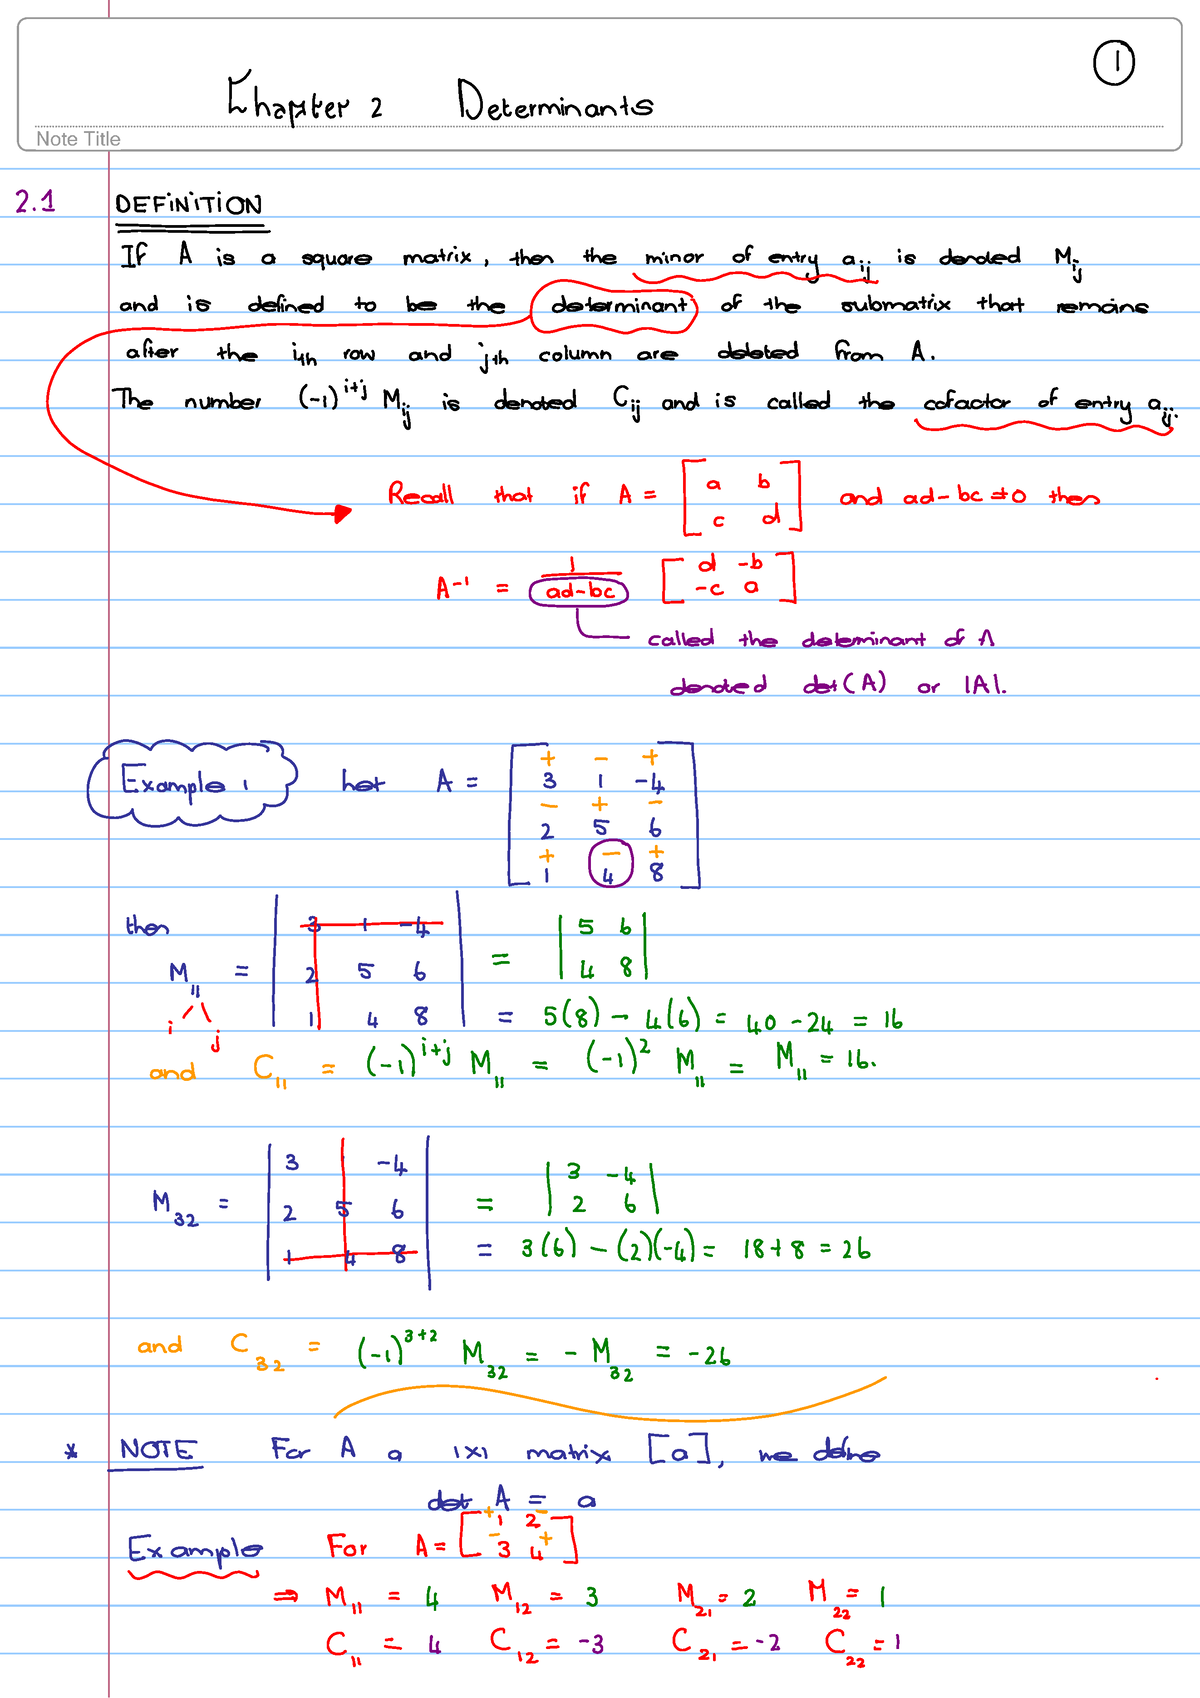 1
Chapter 2 Determinants
Note Title
2.1 DEFINITION
If A is a square matrix, then the minor of entry aij is denoted Mij
and is defined to be the determinant of the submatrix that remains
after the ith row and jth column are deleted from A.
The number (-1)^i+j Mij is denoted Cij and is called the cofactor of entry aij.
Recall that if A = [ a b
c d ] and ad-bc ≠ 0 then
A^-1 = 1/(ad-bc) [ d -b
-c a ]
called the determinant of A
denoted det(A) or |A|.
+ - +
Example 1 Let A = [ 3 1 -4
- + -
2 5 6
+ - +
1 4 8 ]
then | 3 1 -4 | | 5 6 |
M11 = | 2 5 6 | = | 4 8 |
i j | 1 4 8 | = 5(8) - 4(6) = 40 - 24 = 16
and C11 = (-1)^i+j M11 = (-1)^2 M11 = M11 = 16.
| 3 -4 | | 3 -4 |
M32 = | 2 5 6 | = | 2 6 |
| 1 4 8 | = 3(6) - (2)(-4) = 18 + 8 = 26
and C32 = (-1)^3+2 M32 = - M32 = -26
* NOTE For A a 1x1 matrix [a], we define
det A = a
+ -
Example For A = [ 1 2
- +
3 4 ]
⇒ M11 = 4 M12 = 3 M21 = 2 M22 = 1
C11 = 4 C12 = -3 C21 = -2 C22 = 1